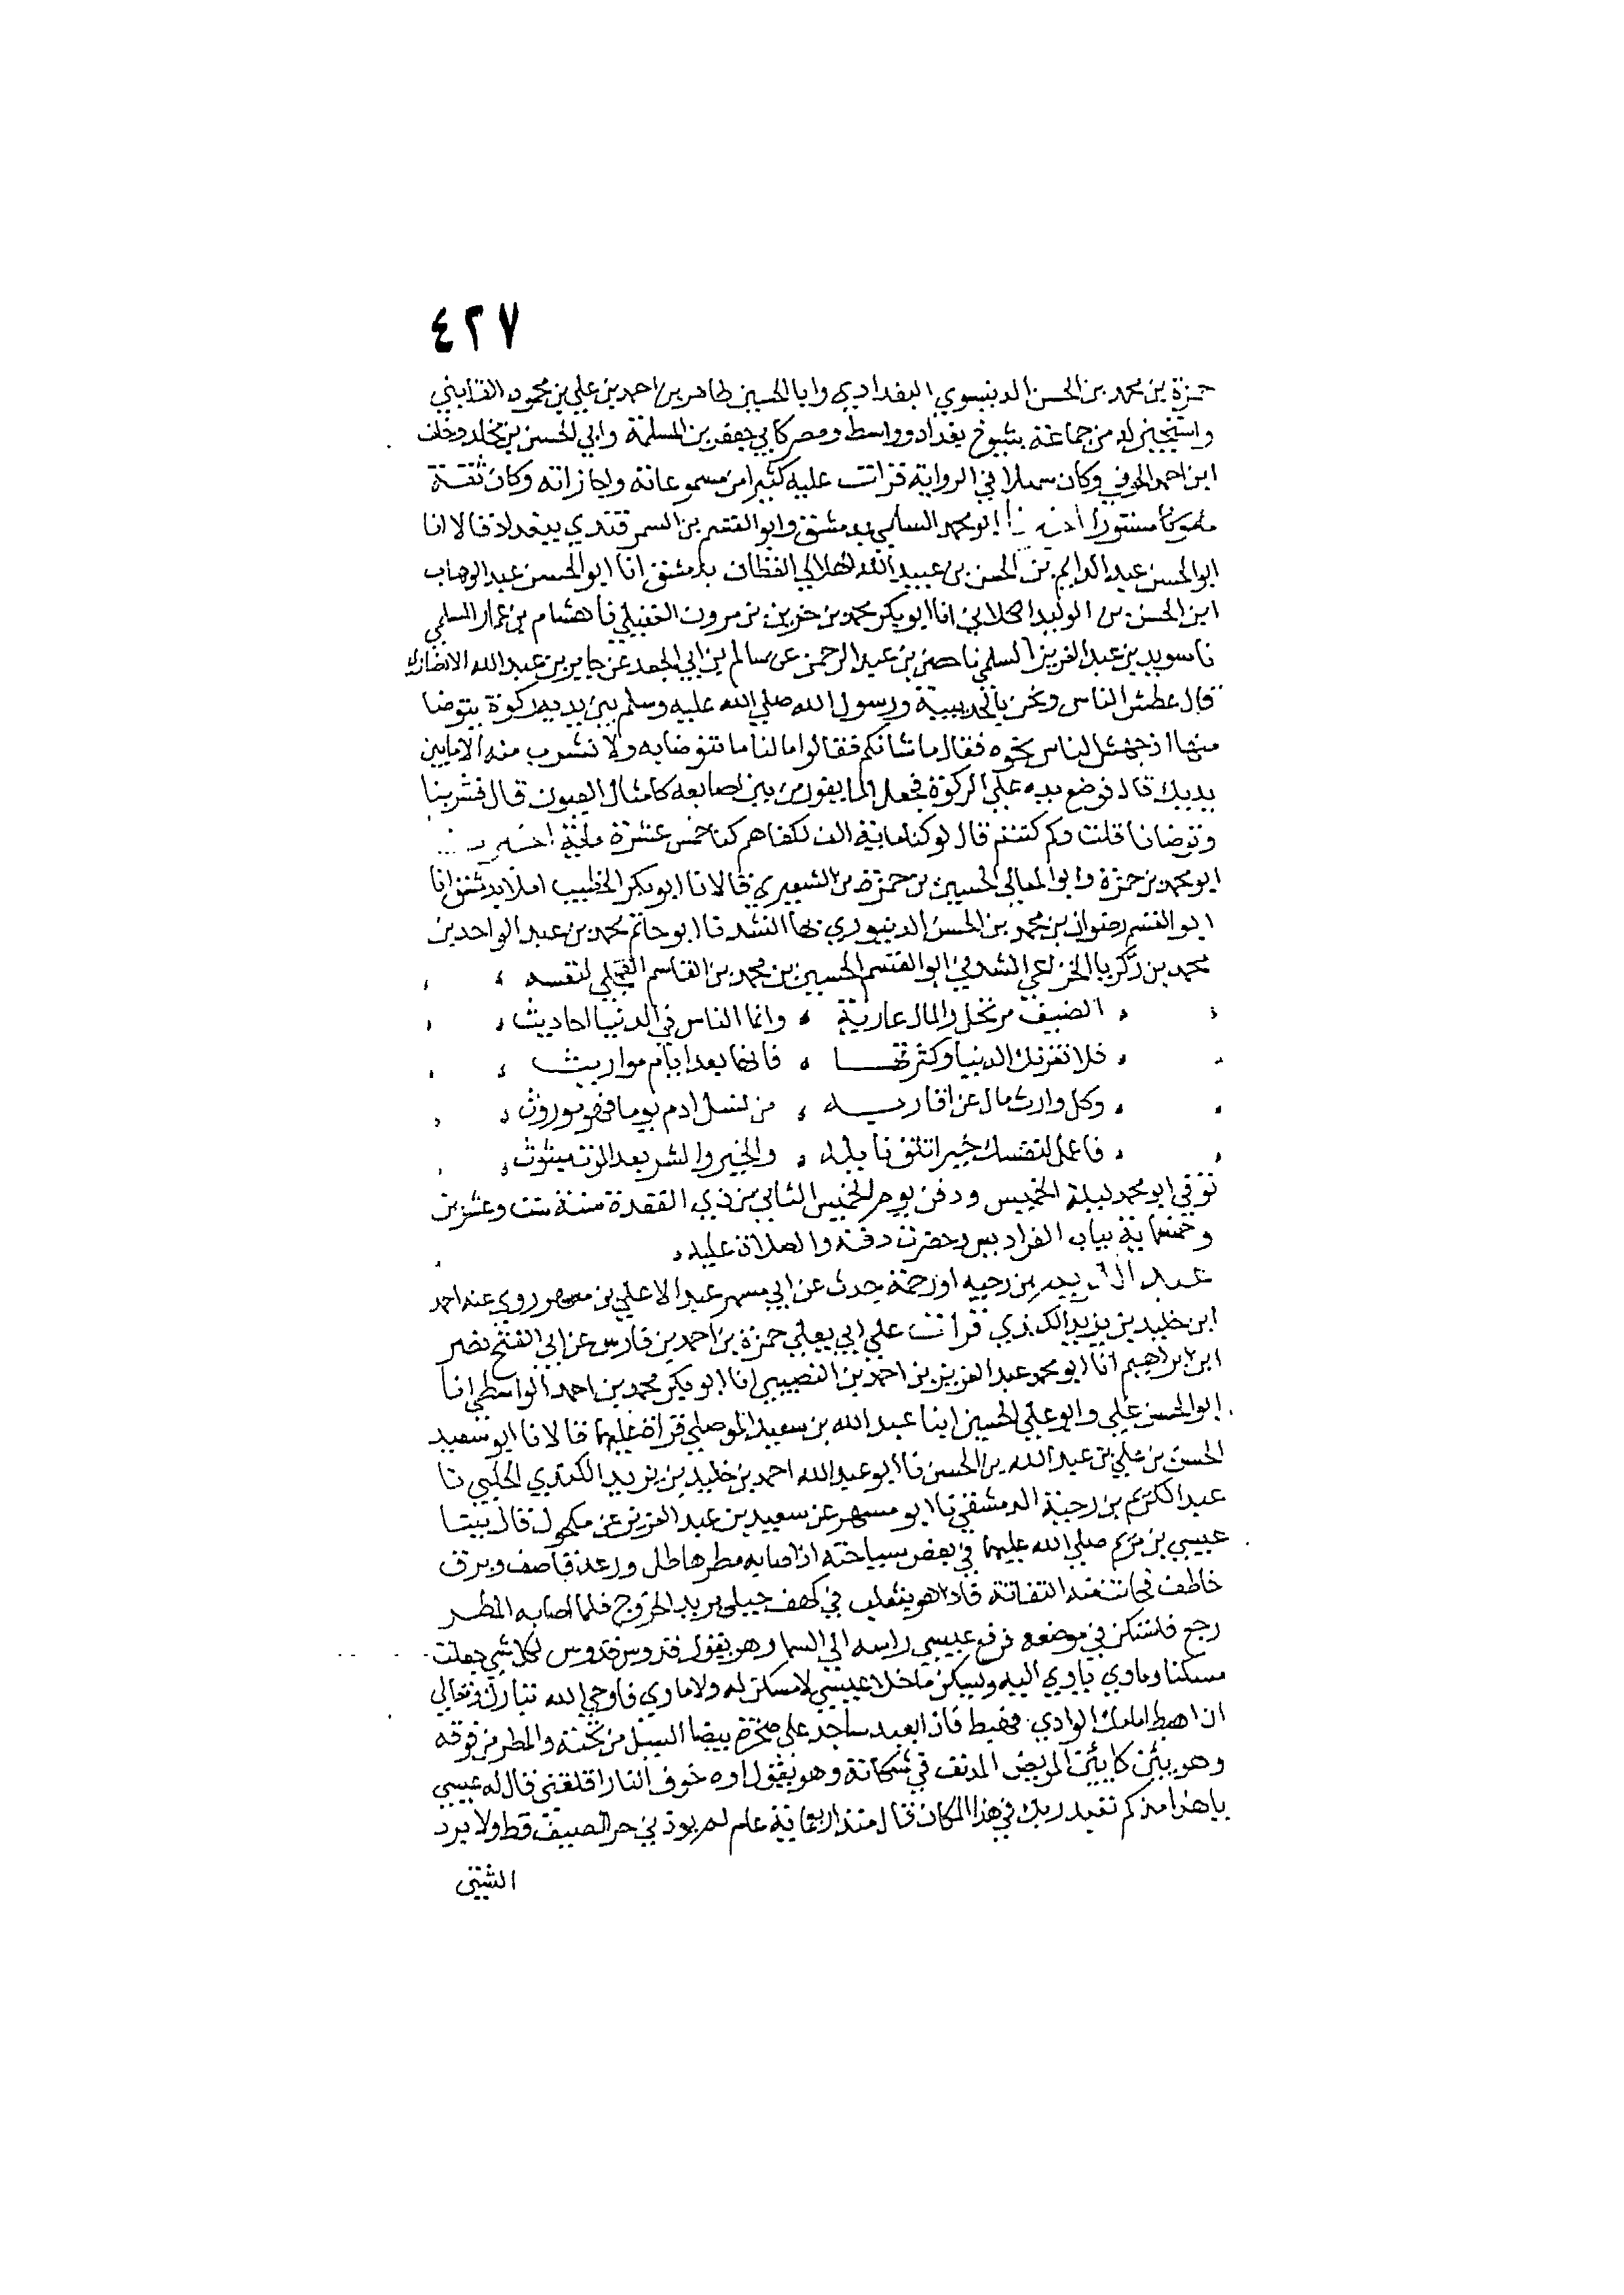 ٤٢٧
حمزة بن محمد بن الحسن الدينوري البغدادي وابا الحسين طاهر بن احمد بن علي بن محمود القايني
واستجيز له من جماعة شيوخ بغداد وواسط ومصر كابي جعفر بن المسلمة وابي الحسن بن مخلد وخلف
ابن احمد الحوفي وكان سهلا في الرواية قرات عليه كثيرا من مسموعاته واجازاته وكان ثقة
مستورا ابو محمد السلمي بدمشق وابو القسم بن السمرقندي ببغداد قالا انا
ابو الحسن عبد الدايم بن الحسن بن عبيد الله الهلالي القطان بدمشق انا ابو الحسين عبد الوهاب
ابن الحسن بن الوليد الكلابي انا ابو بكر محمد بن خريم بن مرون العقيلي نا هشام بن عمار السلمي
نا سويد بن عبد العزيز السلمي نا حصين بن عبد الرحمن عن سالم بن ابي الجعد عن جابر بن عبد الله الانصاري
قال عطش الناس ونحن بالحديبية ورسول الله صلي الله عليه وسلم بين يديه ركوة يتوضا
منها اذ جهش الناس نحوه فقال ما شانكم فقالوا ما لنا ما نتوضا به ولا نشرب منه الا ما بين
يديك قال فوضع يده علي الركوة فجعل الما يفور من بين اصابعه كامثال العيون قال فشربنا
وتوضانا قلت وكم كنتم قال لو كنا ماية الف لكفاهم كنا خمس عشرة ماية
ابو محمد بن حمزة وابو المعالي الحسين بن حمزة بن الشعيري قالا نا ابو بكر الخطيب املا بدمشق انا
ابو القسم رضوان بن محمد بن الحسن الدينوري بها انشدنا ابو حاتم محمد بن عبد الواحد بن
محمد بن زكريا الخزاعي انشدني ابو القسم الحسين بن محمد بن القاسم لنفسه
الضيف مرتحل والمال عارية ، وانما الناس في الدنيا احاديث
فلا تغرنك الدنيا وكثرتها ، فانها بعد ايام مواريث
وكل وارث مال عن اقاربه ، من نسل ادم يوما فهو موروث
فاعمل لنفسك خيرا تلق نايله ، والخير والشر بعد الموت مبثوث
توفي ابو محمد ليلة الخميس ودفن يوم الخميس الثاني من ذي القعدة سنة ست وعشرين
وخمسماية بباب الفراديس وحضرت دفنه والصلاة عليه
عبد بن رحيه او رحمة حدث عن ابي مسهر عبد الاعلي بن مسهر روي عنه احمد
ابن خليد بن يزيد الكندي قرات علي ابي يعلي حمزة بن احمد بن فارس عن ابي الفتح نصر
ابن ابراهيم انا ابو محمد عبد العزيز بن احمد بن النصيبي انا ابو بكر محمد بن احمد الواسطي انا
ابو الحسن علي وابو علي الحسين ابنا عبد الله بن سعيد الموصلي قراة عليهما قالا نا ابو سعيد
الحسن بن علي بن عبد الله بن الحسن نا ابو عبد الله احمد بن خليد بن يزيد الكندي الحلبي نا
عبد الكريم بن رحية الدمشقي نا ابو مسهر عن سعيد بن عبد العزيز عن مكحول قال بينا
عيسي بن مريم صلي الله عليهما في بعض سياحته اذ اصابه مطر هاطل ورعد قاصف وبرق
خاطف التفاتة فاذا هو بثعلب في كهف جبل يريد الخروج فلما اصابه المطر
رجع فاستكن في موضعه فرفع عيسي راسه الي السما وهو يقول قدوس قدوس لكل شي جعلت
مسكنا وماوي ياوي اليه ويسكن ما خلا عيسي لا مسكن له ولا ماوي فاوحي الله تبارك وتعالي
ان اهبط امامك الوادي فهبط فاذا بعبد ساجد علي صخرة بيضا السيل من تحته والمطر من فوقه
وهو يئن كما يئن المريض المدنف في شكاته وهو يقول اوه خوف النار اقلقني قال له عيسي
يا هذا منذ كم تعبد ربك في هذا المكان قال منذ اربعماية عام لم يوذني حر الصيف قط ولا برد
الشتى